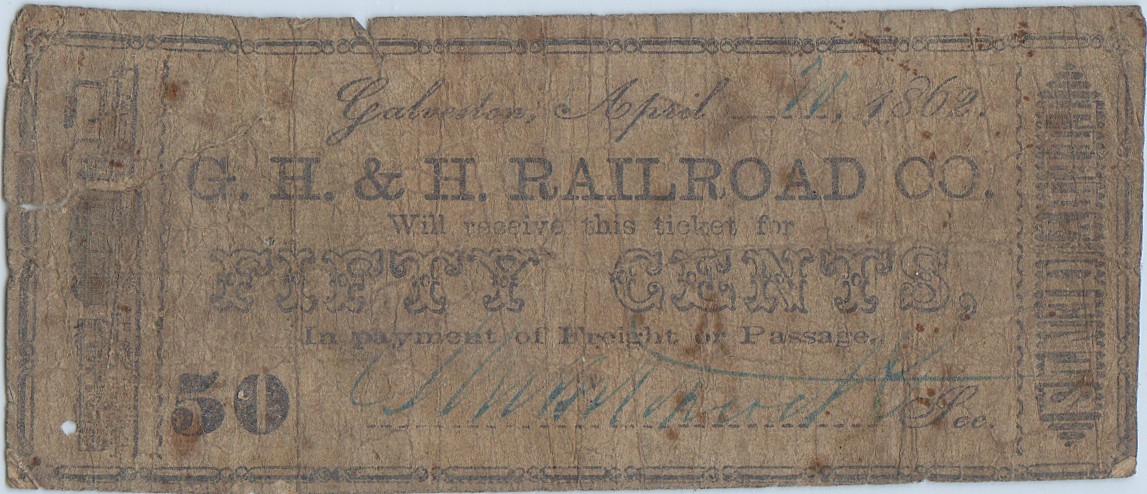 Galveston, April 1862.
G. H. & H. RAILROAD CO.
Will receive this ticket for
FIFTY CENTS,
In payment of Freight or Passage.
50